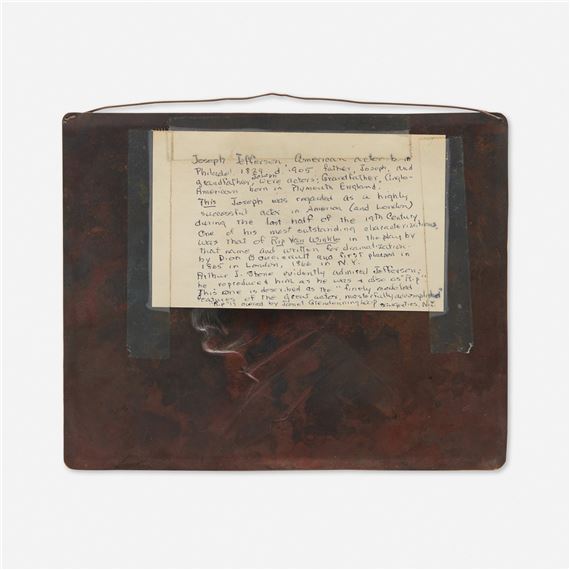 Joseph Jefferson, American actor b. in
Philadel. 1829 d. 1905 father, Joseph, and
grandfather, Joseph were actors; Grandfather, Anglo-
American born in Plymouth England.
This Joseph was regarded as a highly
successful actor in America (and London)
during the last half of the 19th Century.
One of his most outstanding characterizations
was that of Rip Van Winkle in the play by
that name and written for dramatization
by Dion Boucicault and first played in
1865 in London, 1866 in N.Y.
Arthur J. Stone evidently admired Jefferson;
he reproduced him as he was & also as "Rip"
This one is described as the "finely modeled
features of the great actor, masterfully accomplished"
"Rip" is owned by Janet